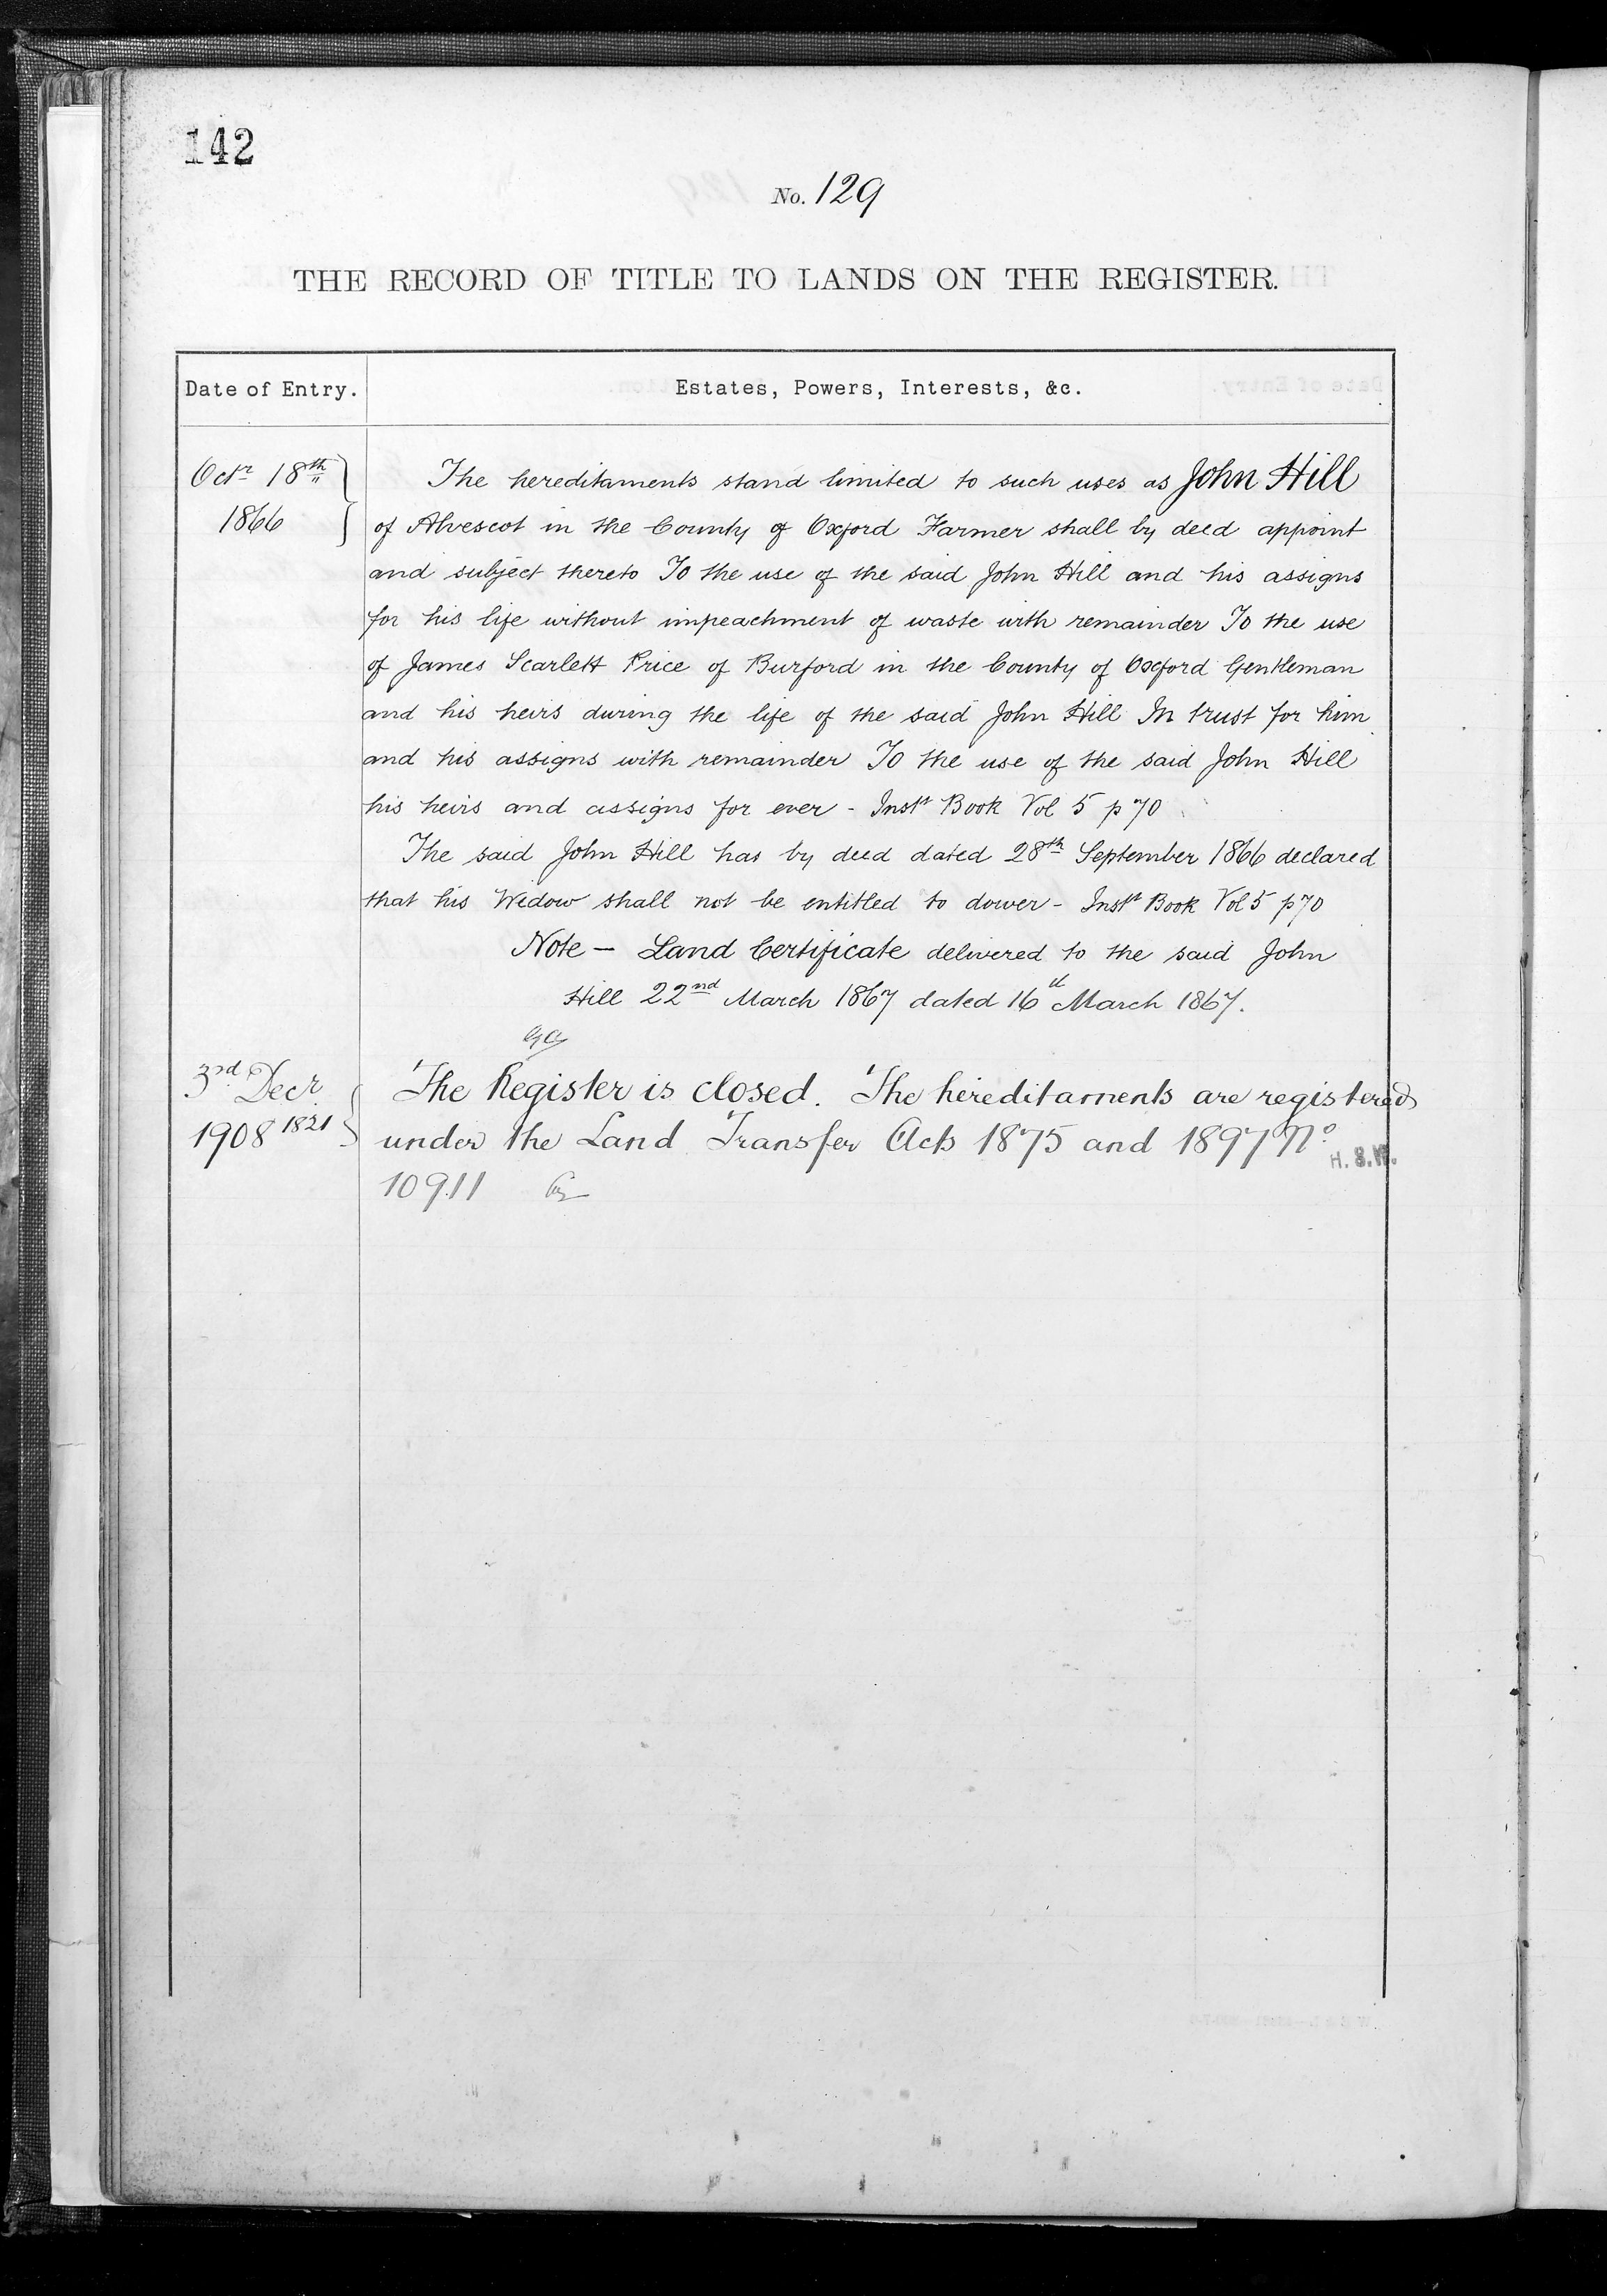 142
No. 129
THE RECORD OF TITLE TO LANDS ON THE REGISTER.
Date of Entry. Estates, Powers, Interests, &c.
Octr 18th The hereditaments stand limited to such uses as John Hill
1866 of Alvescot in the County of Oxford Farmer shall by deed appoint
and subject thereto To the use of the said John Hill and his assigns
for his life without impeachment of waste with remainder To the use
of James Scarlett Price of Burford in the County of Oxford Gentleman
and his heirs during the life of the said John Hill In trust for him
and his assigns with remainder To the use of the said John Hill
his heirs and assigns for ever - Inst Book Vol 5 p 70
The said John Hill has by deed dated 28th September 1866 declared
that his Widow shall not be entitled to dower - Inst Book Vol 5 p 70
Note — Land Certificate delivered to the said John
Hill 22nd March 1867 dated 16th March 1867.
3rd Decr The Register is closed. The hereditaments are registered
1908 1821 under the Land Transfer Acts 1875 and 1897 No
H.S.W.
10911